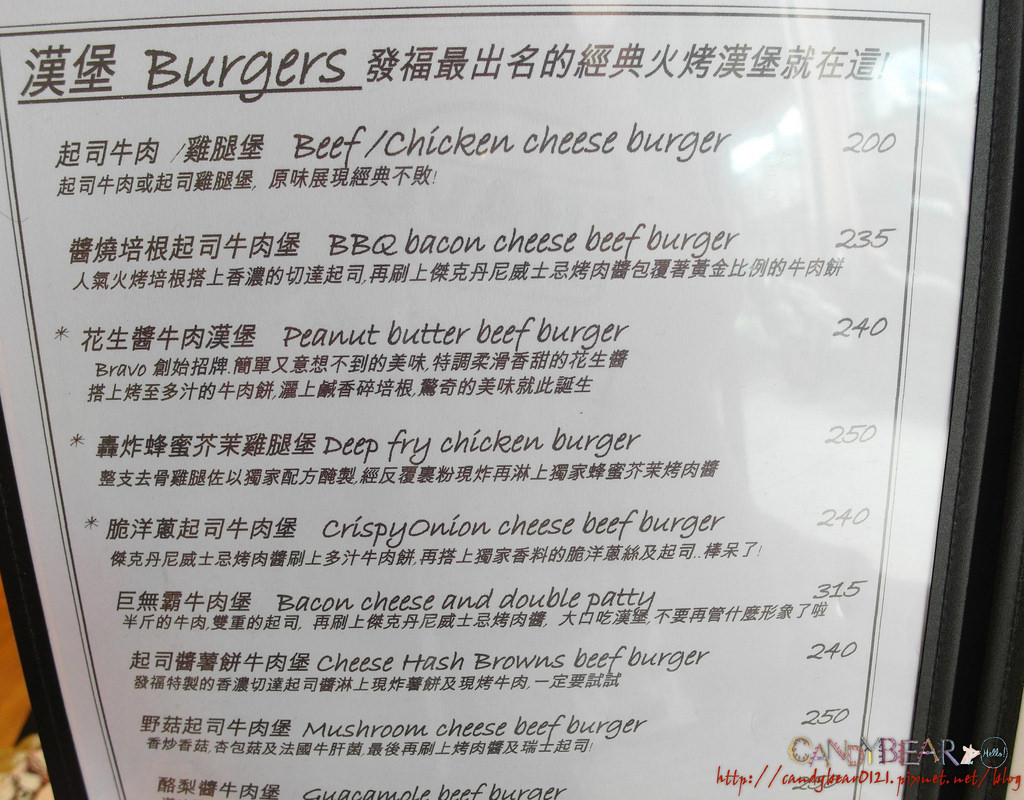 漢堡 Burgers 發福最出名的經典火烤漢堡就在這!
起司牛肉 /雞腿堡 Beef/Chicken cheese burger 200
起司牛肉或起司雞腿堡, 原味展現經典不敗!
醬燒培根起司牛肉堡 BBQ bacon cheese beef burger 235
人氣火烤培根搭上香濃的切達起司,再刷上傑克丹尼威士忌烤肉醬包覆著黃金比例的牛肉餅
* 花生醬牛肉漢堡 Peanut butter beef burger 240
Bravo 創始招牌.簡單又意想不到的美味,特調柔滑香甜的花生醬
搭上烤至多汁的牛肉餅,灑上鹹香碎培根,驚奇的美味就此誕生
* 轟炸蜂蜜芥茉雞腿堡 Deep fry chicken burger 250
整支去骨雞腿佐以獨家配方醃製,經反覆裹粉現炸再淋上獨家蜂蜜芥茉烤肉醬
* 脆洋蔥起司牛肉堡 CrispyOnion cheese beef burger 240
傑克丹尼威士忌烤肉醬刷上多汁牛肉餅,再搭上獨家香料的脆洋蔥絲及起司..棒呆了!
巨無霸牛肉堡 Bacon cheese and double patty 315
半斤的牛肉,雙重的起司, 再刷上傑克丹尼威士忌烤肉醬, 大口吃漢堡,不要再管什麼形象了啦
起司醬薯餅牛肉堡 Cheese Hash Browns beef burger 240
發福特製的香濃切達起司醬淋上現炸薯餅及現烤牛肉,一定要試試
野菇起司牛肉堡 Mushroom cheese beef burger 250
香炒香菇,杏包菇及法國牛肝菌,最後再刷上烤肉醬及瑞士起司!
酪梨醬牛肉堡 Guacamole beef burger
CANDYBEAR Hello!
http://candybear0121.pixnet.net/blog